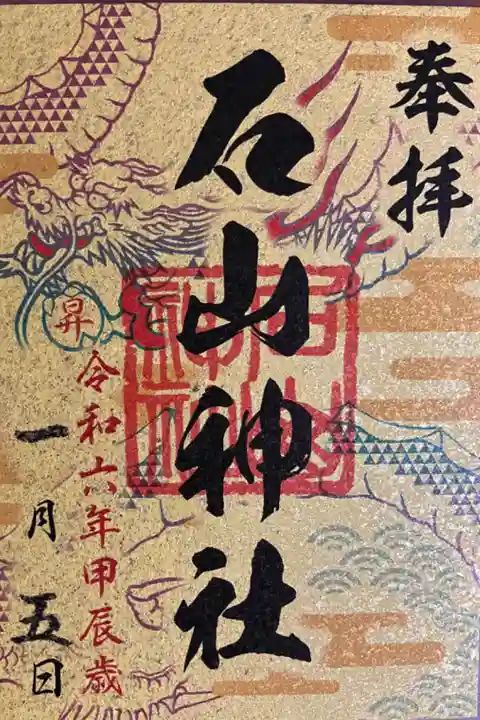 奉拝
石山神社
石山神社
昇
令和六年甲辰歳
一月五日